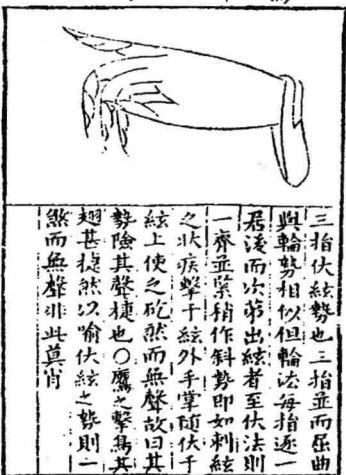 三指伏絃勢也三指並而屈曲
與輪勢相似但輪法每指逐一
居後而次第出絃者至伏法則
一齊並緊稍作斜勢即如刺絃
之狀疾擊于絃外手掌隨伏于
絃上使之砣然而無聲故曰其
勢險其聲棲也○鷹之擊鳥其
翅甚捷然以喻伏絃之勢則一
然而無聲非此莫肖